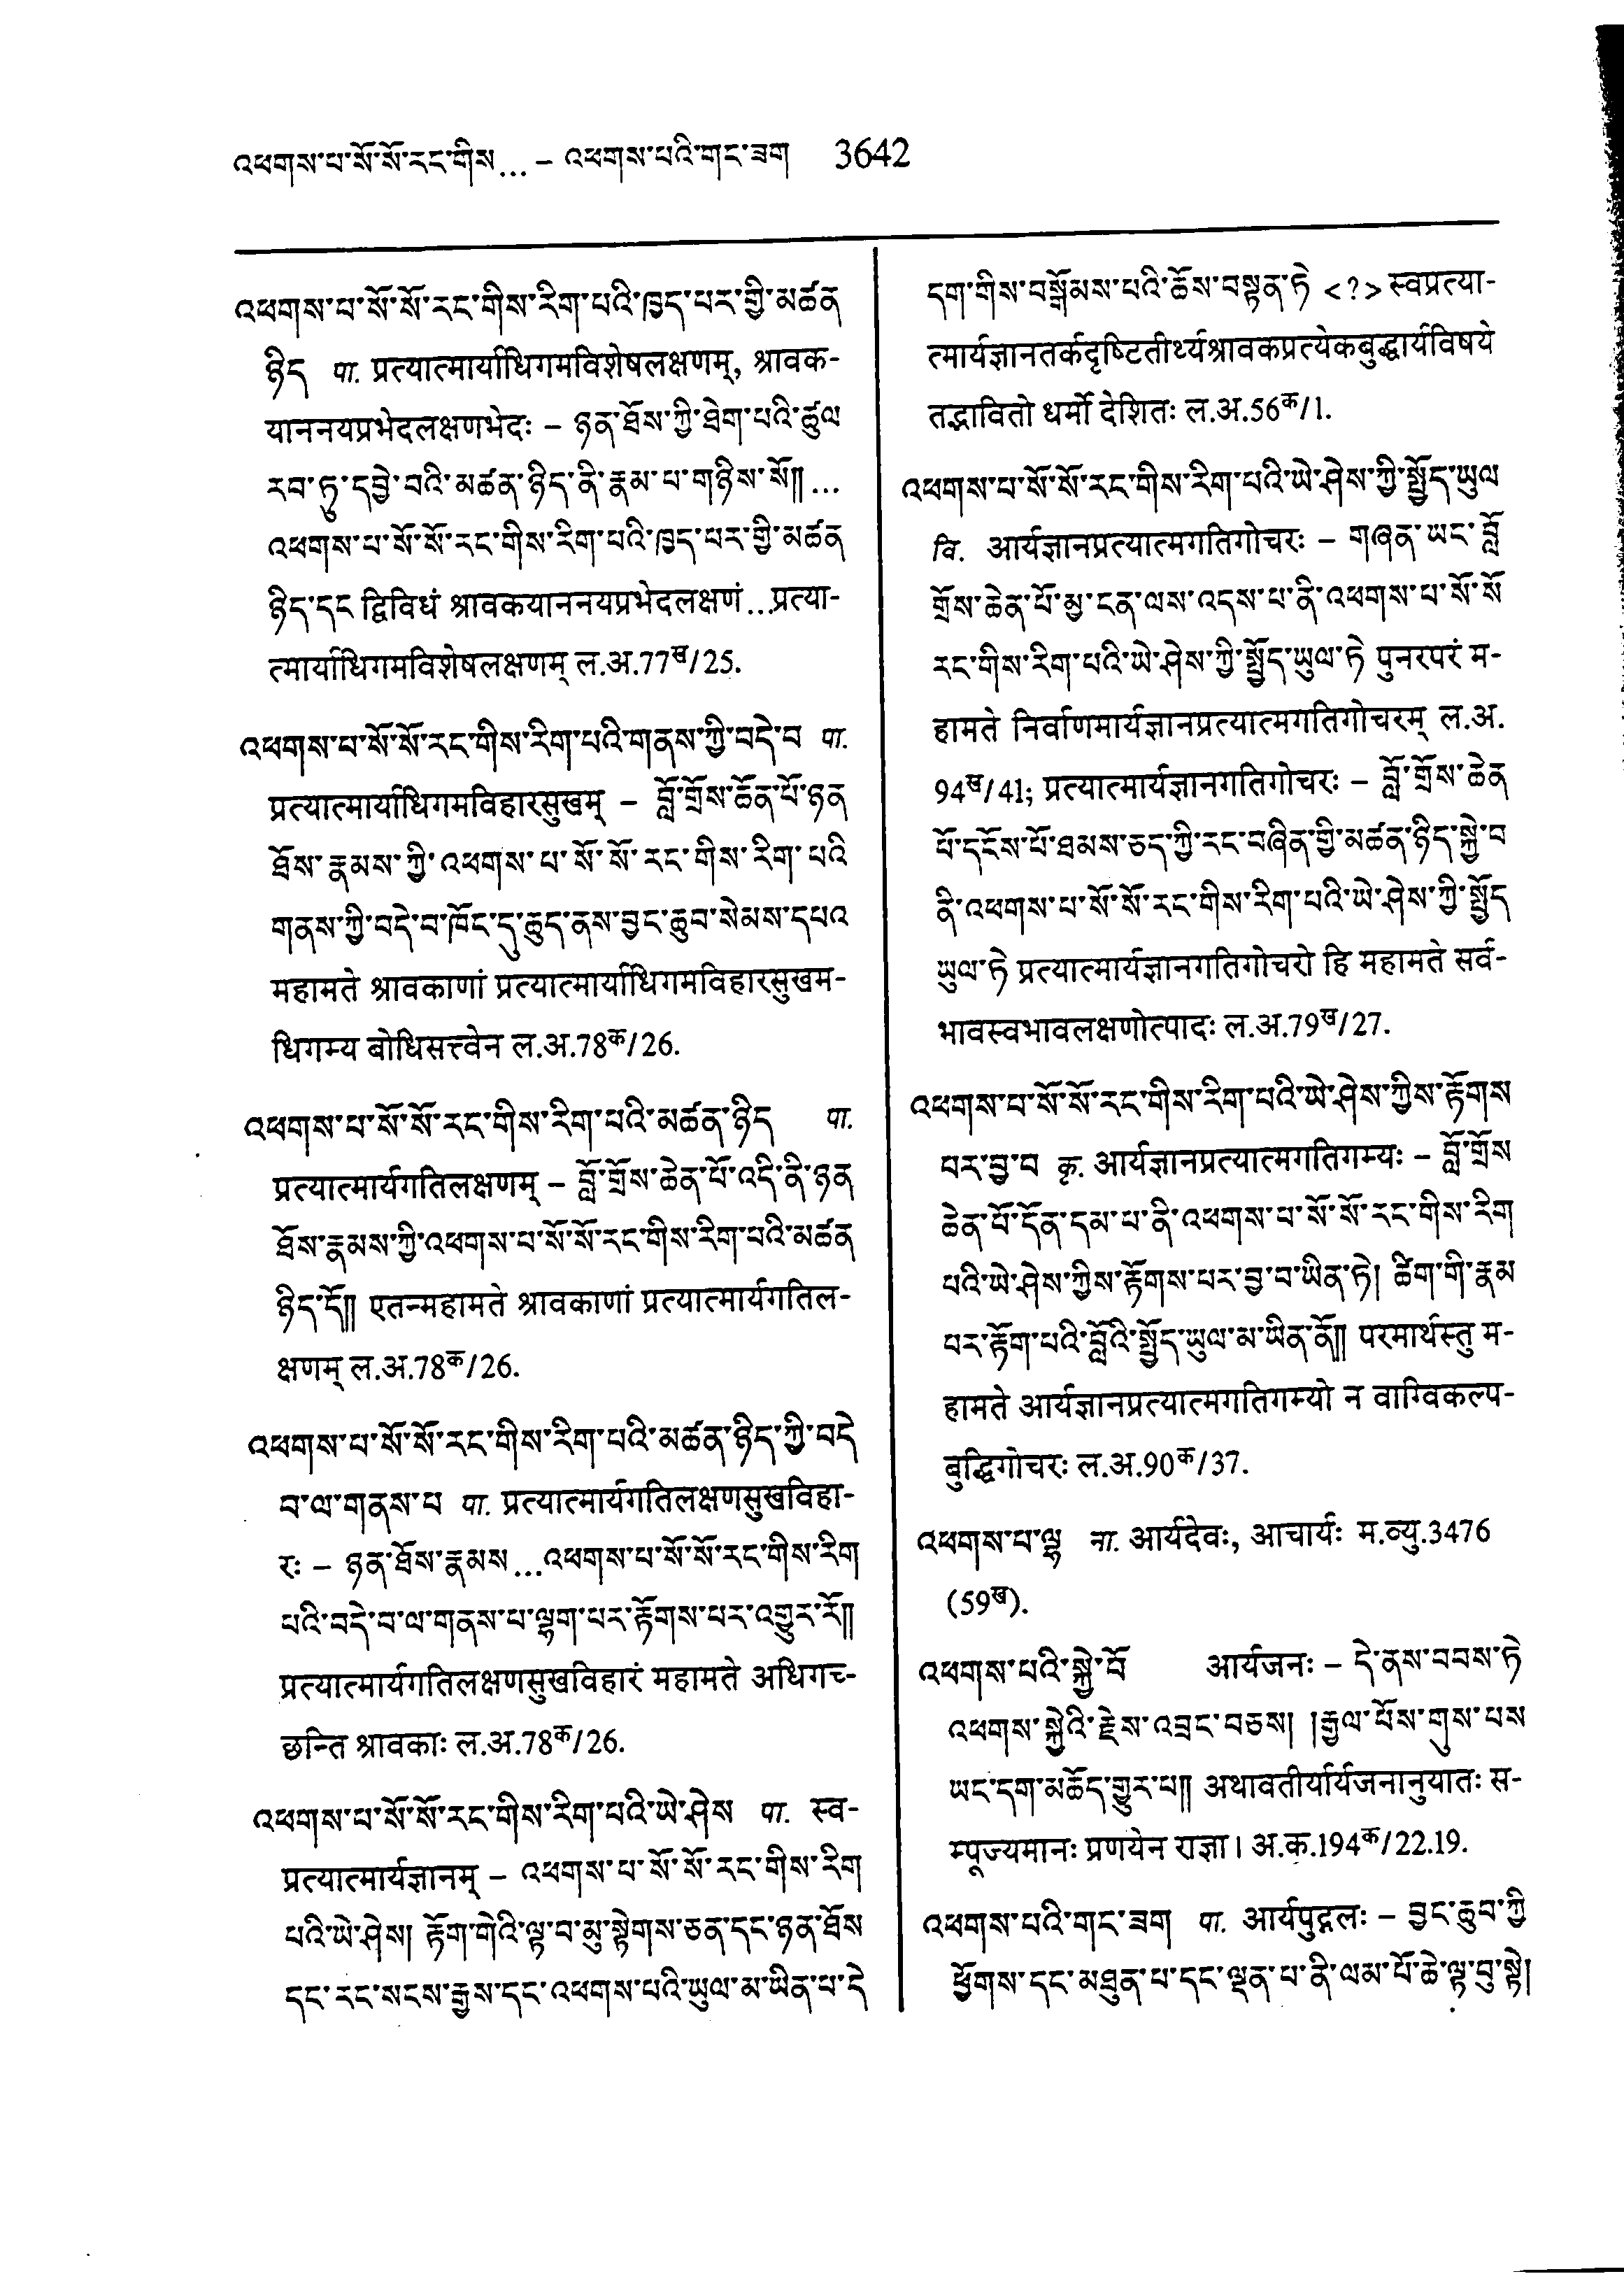 འཕགས་པ་སོ་སོ་རང་གིས...– འཕགས་པའི་གང་ཟག 3642
འཕགས་པ་སོ་སོ་རང་གིས་རིག་པའི་ཁྱད་པར་གྱི་མཚན
ཉིད པा. प्रत्यात्मार्याधिगमविशेषलक्षणम्, श्रावक-
याननयप्रभेदलक्षणभेदः – ཉན་ཐོས་ཀྱི་ཐེག་པའི་ཚུལ
རབ་ཏུ་དབྱེ་བའི་མཚན་ཉིད་ནི་རྣམ་པ་གཉིས་སོ༎...
འཕགས་པ་སོ་སོ་རང་གིས་རིག་པའི་ཁྱད་པར་གྱི་མཚན
ཉིད་དང द्विविधं श्रावकयाननयप्रभेदलक्षणं...प्रत्या-
त्मार्याधिगमविशेषलक्षणम् ल.अ.77ख/25.
འཕགས་པ་སོ་སོ་རང་གིས་རིག་པའི་གནས་ཀྱི་བདེ་བ पा.
प्रत्यात्मार्याधिगमविहारसुखम् – བློ་གྲོས་ཆོན་པོ་ཉན
ཐོས་རྣམས་ཀྱི་འཕགས་པ་སོ་སོ་རང་གིས་རིག་པའི
གནས་ཀྱི་བདེ་བ་ཁོང་དུ་ཆུད་ནས་བྱང་ཆུབ་སེམས་དཔའ
महामते श्रावकाणां प्रत्यात्मार्याधिगमविहारसुखम-
धिगम्य बोधिसत्त्वेन ल.अ.78क/26.
འཕགས་པ་སོ་སོ་རང་གིས་རིག་པའི་མཚན་ཉིད पा.
प्रत्यात्मार्यगतिलक्षणम् – བློ་གྲོས་ཆེན་པོ་འདི་ནི་ཉན
ཐོས་རྣམས་ཀྱི་འཕགས་པ་སོ་སོ་རང་གིས་རིག་པའི་མཚན
ཉིད་དོ༎ एतन्महामते श्रावकाणां प्रत्यात्मार्यगतिल-
क्षणम् ल.अ.78क/26.
འཕགས་པ་སོ་སོ་རང་གིས་རིག་པའི་མཚན་ཉིད་ཀྱི་བདེ
བ་ལ་གནས་པ पा. प्रत्यात्मार्यगतिलक्षणसुखविहा-
रः – ཉན་ཐོས་རྣམས...འཕགས་པ་སོ་སོ་རང་གིས་རིག
པའི་བདེ་བ་ལ་གནས་པ་ལྷག་པར་རྟོགས་པར་འགྱུར་རོ༎
प्रत्यात्मार्यगतिलक्षणसुखविहारं महामते अधिगच्-
छन्ति श्रावकाः ल.अ.78क/26.
འཕགས་པ་སོ་སོ་རང་གིས་རིག་པའི་ཡེ་ཤེས पा. स्व-
प्रत्यात्मार्यज्ञानम् – འཕགས་པ་སོ་སོ་རང་གིས་རིག
པའི་ཡེ་ཤེས། རྟོག་གེའི་ལྟ་བ་མུ་སྟེགས་ཅན་དང་ཉན་ཐོས
དང་རང་སངས་རྒྱས་དང་འཕགས་པའི་ཡུལ་མ་ཡིན་པ་དེ
དག་གིས་བསྒོམས་པའི་ཆོས་བསྟན་ཏེ <?> स्वप्रत्या-
त्मार्यज्ञानतर्कदृष्टितीर्थ्यश्रावकप्रत्येकबुद्धार्यविषये
तद्भावितो धर्मो देशितः ल.अ.56क/1.
འཕགས་པ་སོ་སོ་རང་གིས་རིག་པའི་ཡེ་ཤེས་ཀྱི་སྤྱོད་ཡུལ
वि. आर्यज्ञानप्रत्यात्मगतिगोचरः – གཞན་ཡང་བློ
གྲོས་ཆེན་པོ་མྱ་ངན་ལས་འདས་པ་ནི་འཕགས་པ་སོ་སོ
རང་གིས་རིག་པའི་ཡེ་ཤེས་ཀྱི་སྤྱོད་ཡུལ་ཏེ पुनरपरं म-
हामते निर्वाणमार्यज्ञानप्रत्यात्मगतिगोचरम् ल.अ.
94ख/41; प्रत्यात्मार्यज्ञानगतिगोचरः – བློ་གྲོས་ཆེན
པོ་དངོས་པོ་ཐམས་ཅད་ཀྱི་རང་བཞིན་གྱི་མཚན་ཉིད་སྐྱེ་བ
ནི་འཕགས་པ་སོ་སོ་རང་གིས་རིག་པའི་ཡེ་ཤེས་ཀྱི་སྤྱོད
ཡུལ་ཏེ प्रत्यात्मार्यज्ञानगतिगोचरो हि महामते सर्व-
भावस्वभावलक्षणोत्पादः ल.अ.79ख/27.
འཕགས་པ་སོ་སོ་རང་གིས་རིག་པའི་ཡེ་ཤེས་ཀྱིས་རྟོགས
པར་བྱ་བ कृ. आर्यज्ञानप्रत्यात्मगतिगम्यः – བློ་གྲོས
ཆེན་པོ་དོན་དམ་པ་ནི་འཕགས་པ་སོ་སོ་རང་གིས་རིག
པའི་ཡེ་ཤེས་ཀྱིས་རྟོགས་པར་བྱ་བ་ཡིན་ཏེ། ཚིག་གི་རྣམ
པར་རྟོག་པའི་བློའི་སྤྱོད་ཡུལ་མ་ཡིན་ནོ༎ परमार्थस्तु म-
हामते आर्यज्ञानप्रत्यात्मगतिगम्यो न वाग्विकल्प-
बुद्धिगोचरः ल.अ.90क/37.
འཕགས་པ་ལྷ ना. आर्यदेवः, आचार्यः म.व्यु.3476
(59ख).
འཕགས་པའི་སྐྱེ་བོ आर्यजनः – དེ་ནས་བབས་ཏེ
འཕགས་སྐྱེའི་རྗེས་འབྲང་བཅས། །རྒྱལ་པོས་གུས་པས
ཡང་དག་མཆོད་གྱུར་པ༎ अथावतीर्यार्यजनानुयातः स-
म्पूज्यमानः प्रणयेन राज्ञा। अ.क.194क/22.19.
འཕགས་པའི་གང་ཟག पा. आर्यपुद्गलः – བྱང་ཆུབ་ཀྱི
ཕྱོགས་དང་མཐུན་པ་དང་ལྡན་པ་ནི་ལམ་པོ་ཆེ་ལྟ་བུ་སྟེ།